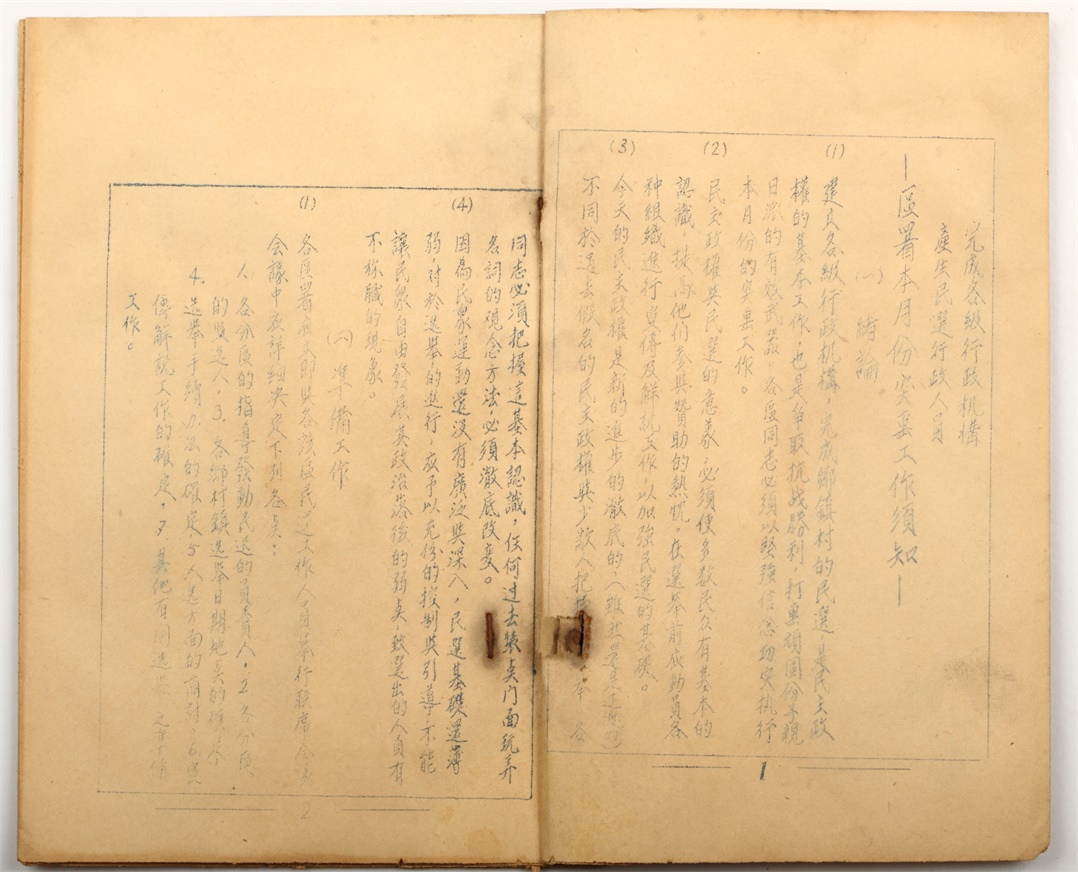 完成各級行政机構
產生民選行政人員
—區署本月份实﻿工作須知—
(一) 緒論
(1) 建立各級行政机構，完成鄉鎮村的民選，是民主政
權的基本工作，也是争取抗战勝利，打
日派的有效武器。各區同志必須以堅強信念切实执行
本月份的实工作。
(2) 民主政權與民選的意義，必須使多数民众有基本的
認識，提高他们参與贊助的熱忱，在選举前应動員各
种組織進行宣傳及解說工作，以加強民選的基礎。
(3) 今天的民主政權是新的進步的澈底的，(雖然還是
不同於過去假名的民主政權與少数人把 各
同志必須把握這基本認識，任何过去装点门面玩弄
名詞的观念方法，必須澈底改变。
(4) 因爲民衆運動還没有廣泛與深入，民選基礎還薄
弱，对於选举的進行，应予以充份的控制與引導，不能
讓民衆自由發展其政治落後的弱点，致選出的人員有
不称職的現象。
(二) 準備工作
(1) 各區署应立即與各該區民运工作人員举行联席会議
会議中应詳細决定下列各点：
1. 各分區的指導發動民選的負責人，2. 各分區
的監選人，3. 各鄉村鎮選举日期地点的確定
4. 選举手續办法的確定，5. 人选方面的商討 6. 宣
傳解說工作的確定，7. 其他有関選举 之準備
工作。
1
2